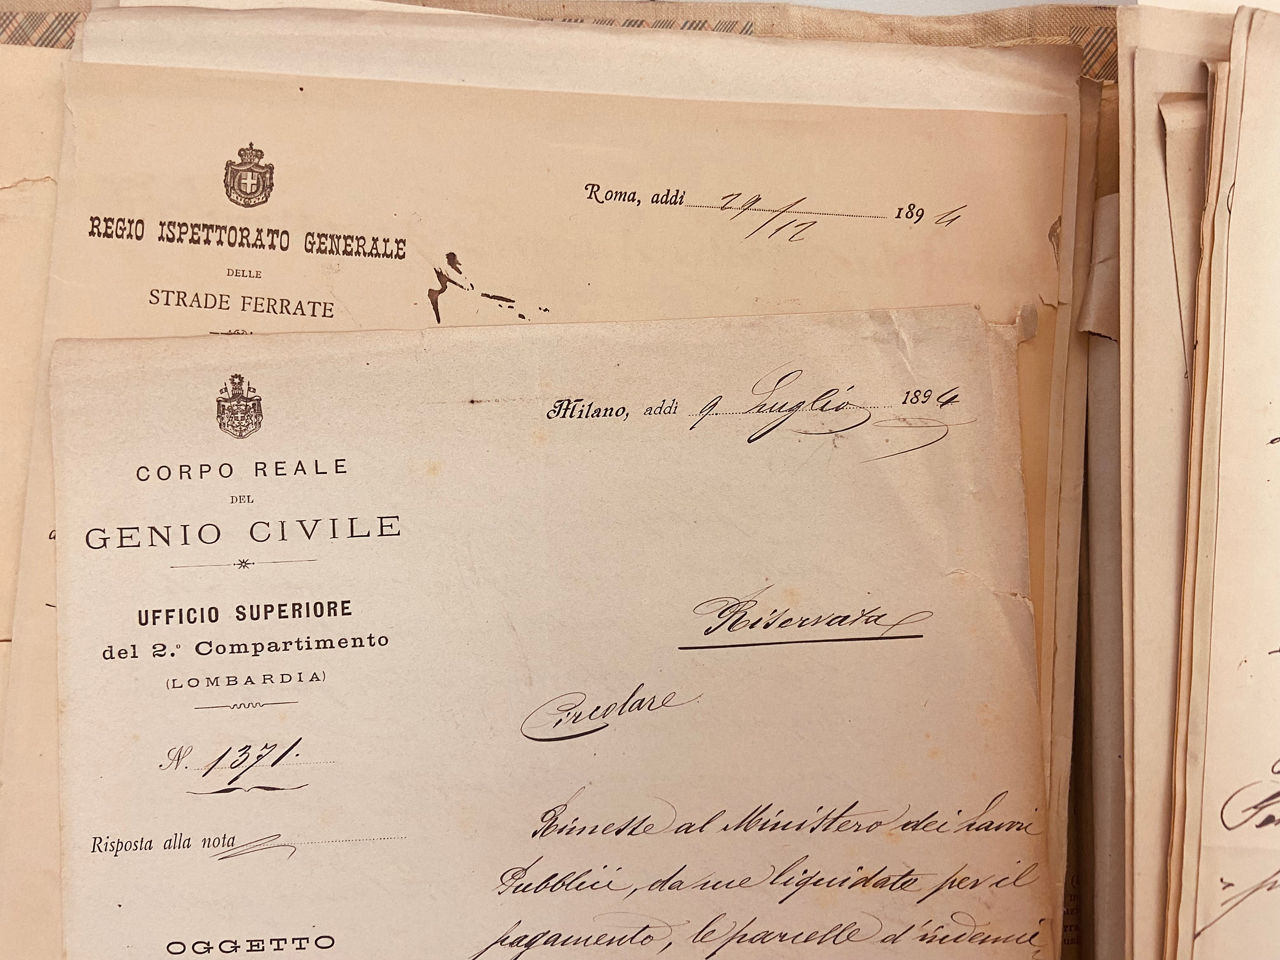 Roma, addì 29/12 1894
REGIO ISPETTORATO GENERALE
DELLE
STRADE FERRATE
Milano, addì 9. Luglio 1894
CORPO REALE
DEL
GENIO CIVILE
UFFICIO SUPERIORE
del 2.º Compartimento
(LOMBARDIA)
N. 1371.
Risposta alla nota
OGGETTO
Riservata
Circolare
Rimesse al Ministero dei Lavori
Pubblici, da me liquidate per il
pagamento, le parcelle d'indenni